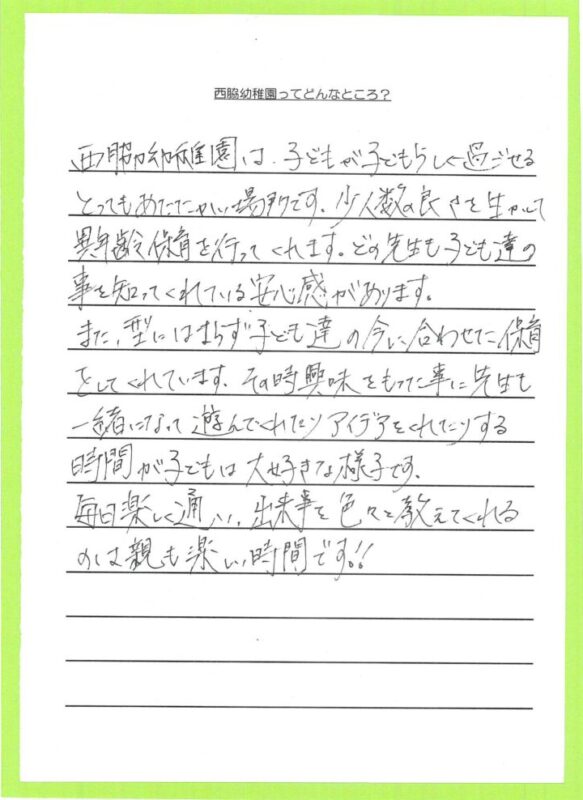 西脇幼稚園ってどんなところ？
西脇幼稚園は、子どもが子どもらしく過ごせる
とってもあたたかい場所です。少人数の良さを生かして
異年齢保育を行ってくれます。どの先生も子ども達の
事を知ってくれている安心感があります。
また、型にはまらず子ども達の今に合わせた保育
をしてくれています。その時興味をもった事に先生も
一緒になって遊んでくれたりアイデアをくれたりする
時間が子どもは大好きな様子です。
毎日楽しく通い、出来事を色々と教えてくれる
のは親も楽しい時間です!!